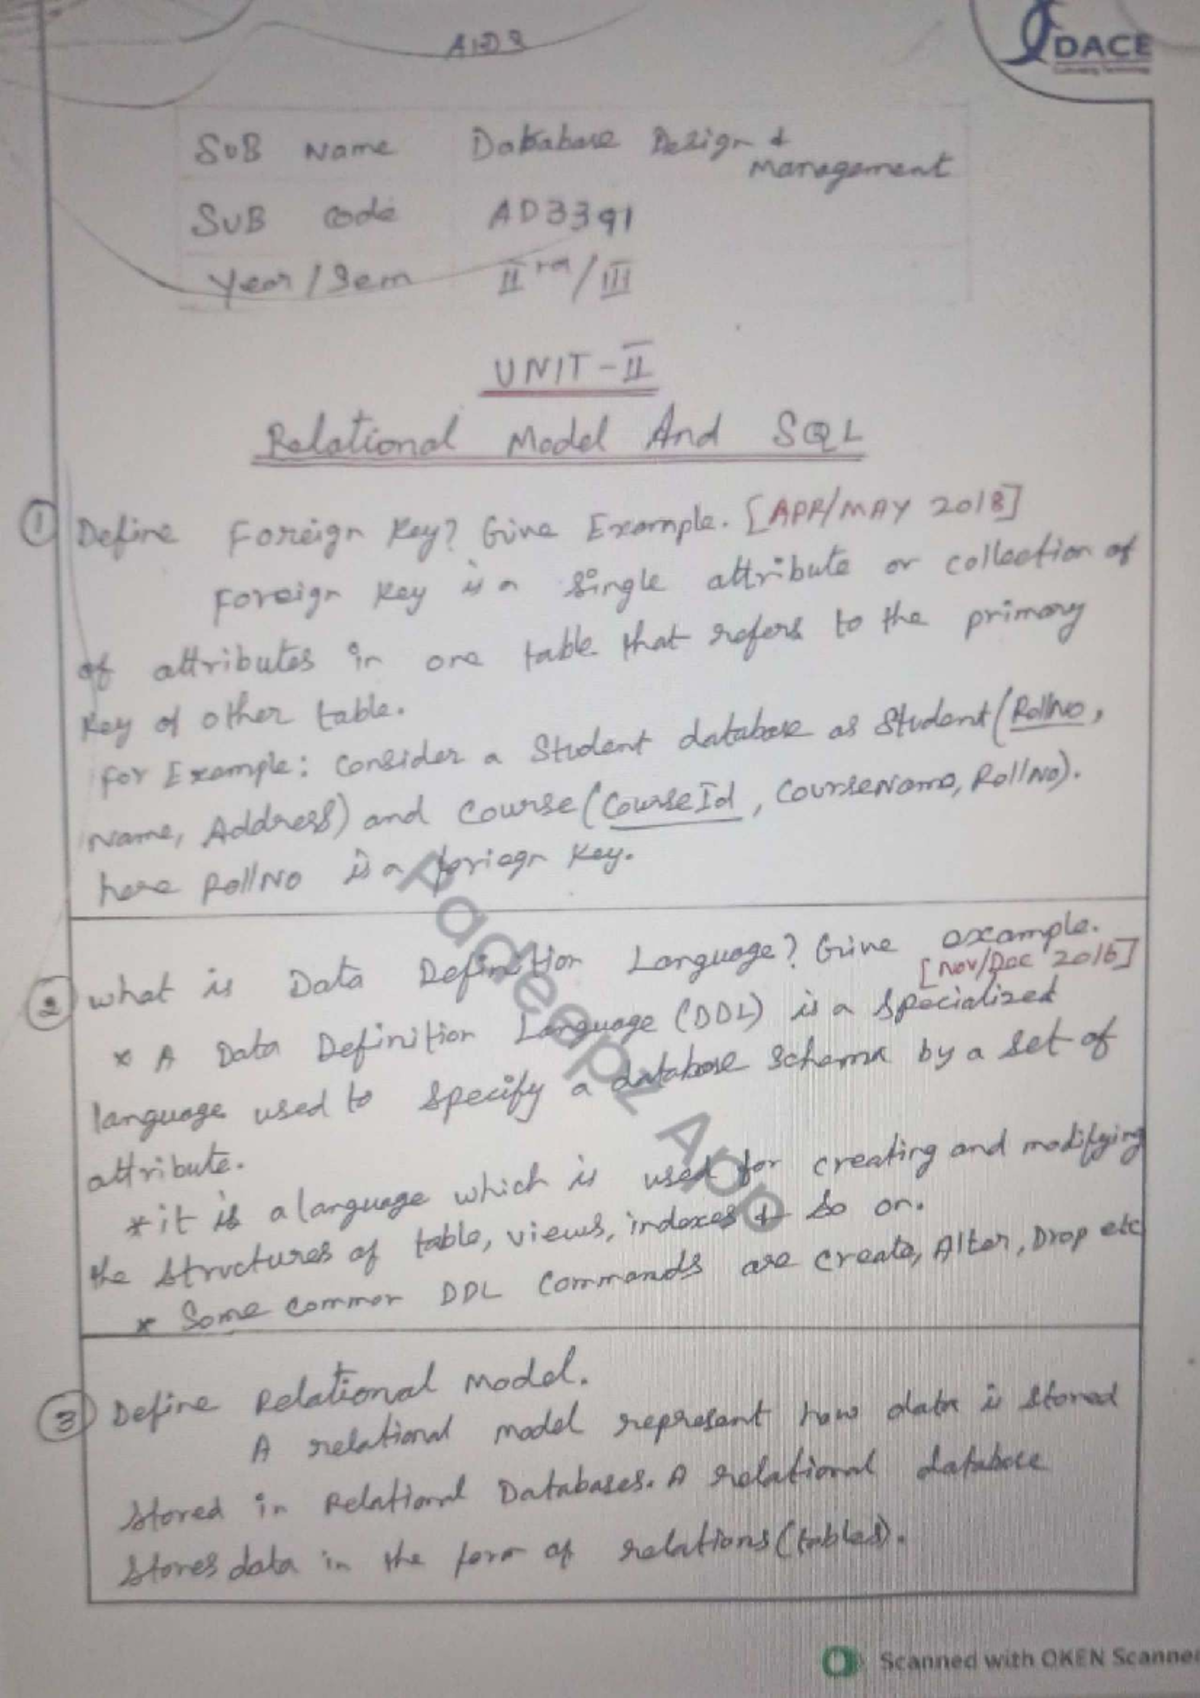 AIDS
DACE
SUB Name Database Design &
Management
SUB Code AD3391
Year / Sem II / III
UNIT - II
Relational Model And SQL
① Define Foreign Key? Give Example. [APR/MAY 2018]
Foreign Key is a single attribute or collection of
of attributes in one table that refers to the primary
key of other table.
For Example: Consider a Student database as Student (RollNo,
Name, Address) and Course (CourseId, CourseName, RollNo).
here RollNo is a foriegn key.
② What is Data Definition Language? Give example.
[Nov/Dec 2016]
* A Data Definition Language (DDL) is a specialized
language used to specify a database schema by a set of
attribute.
* it is a language which is used for creating and modifying
the structures of table, views, indexes & so on.
* Some common DDL commands are Create, Alter, Drop etc
③ Define Relational Model.
A relational model represent how data is stored
stored in Relational Databases. A relational database
stores data in the form of relations (tables).
Padeepz App
Scanned with OKEN Scanner